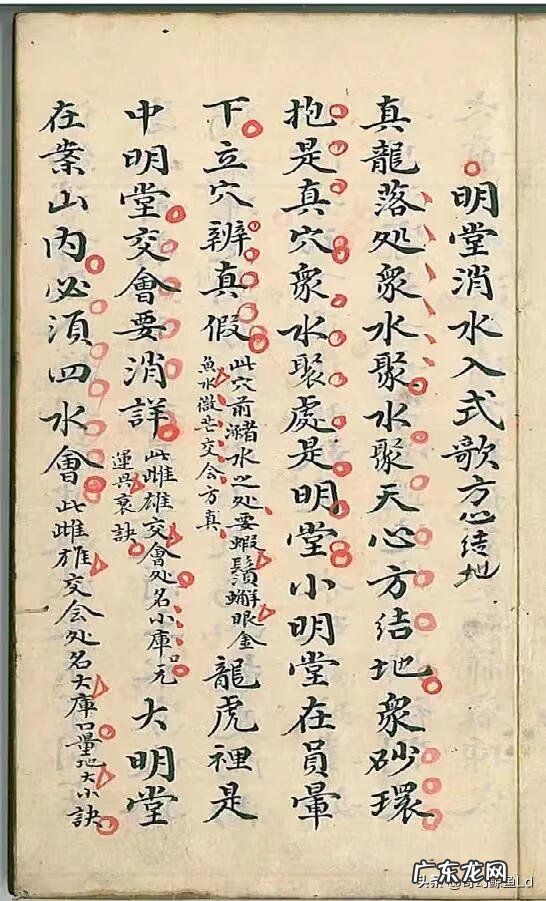 明堂消水入式歌方心结地
真龍落处衆水聚水聚天心方结地衆砂環
抱是真穴衆水聚處是明堂小明堂在員暈
下立穴辨真假
此穴前潴水之处要蝦鬚蠏眼金
魚水微茫交会方真
龍虎裡是
中明堂交會要消詳
此雌雄交會处名小庫元
運兴衰訣
大明堂
在案山内必須四水會此雌雄交会处名大庫口量地大小訣
广东龙网